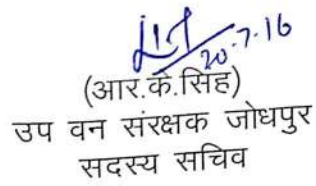 20-7-16
(आर.के.सिंह)
उप वन संरक्षक जोधपुर
सदस्य सचिव